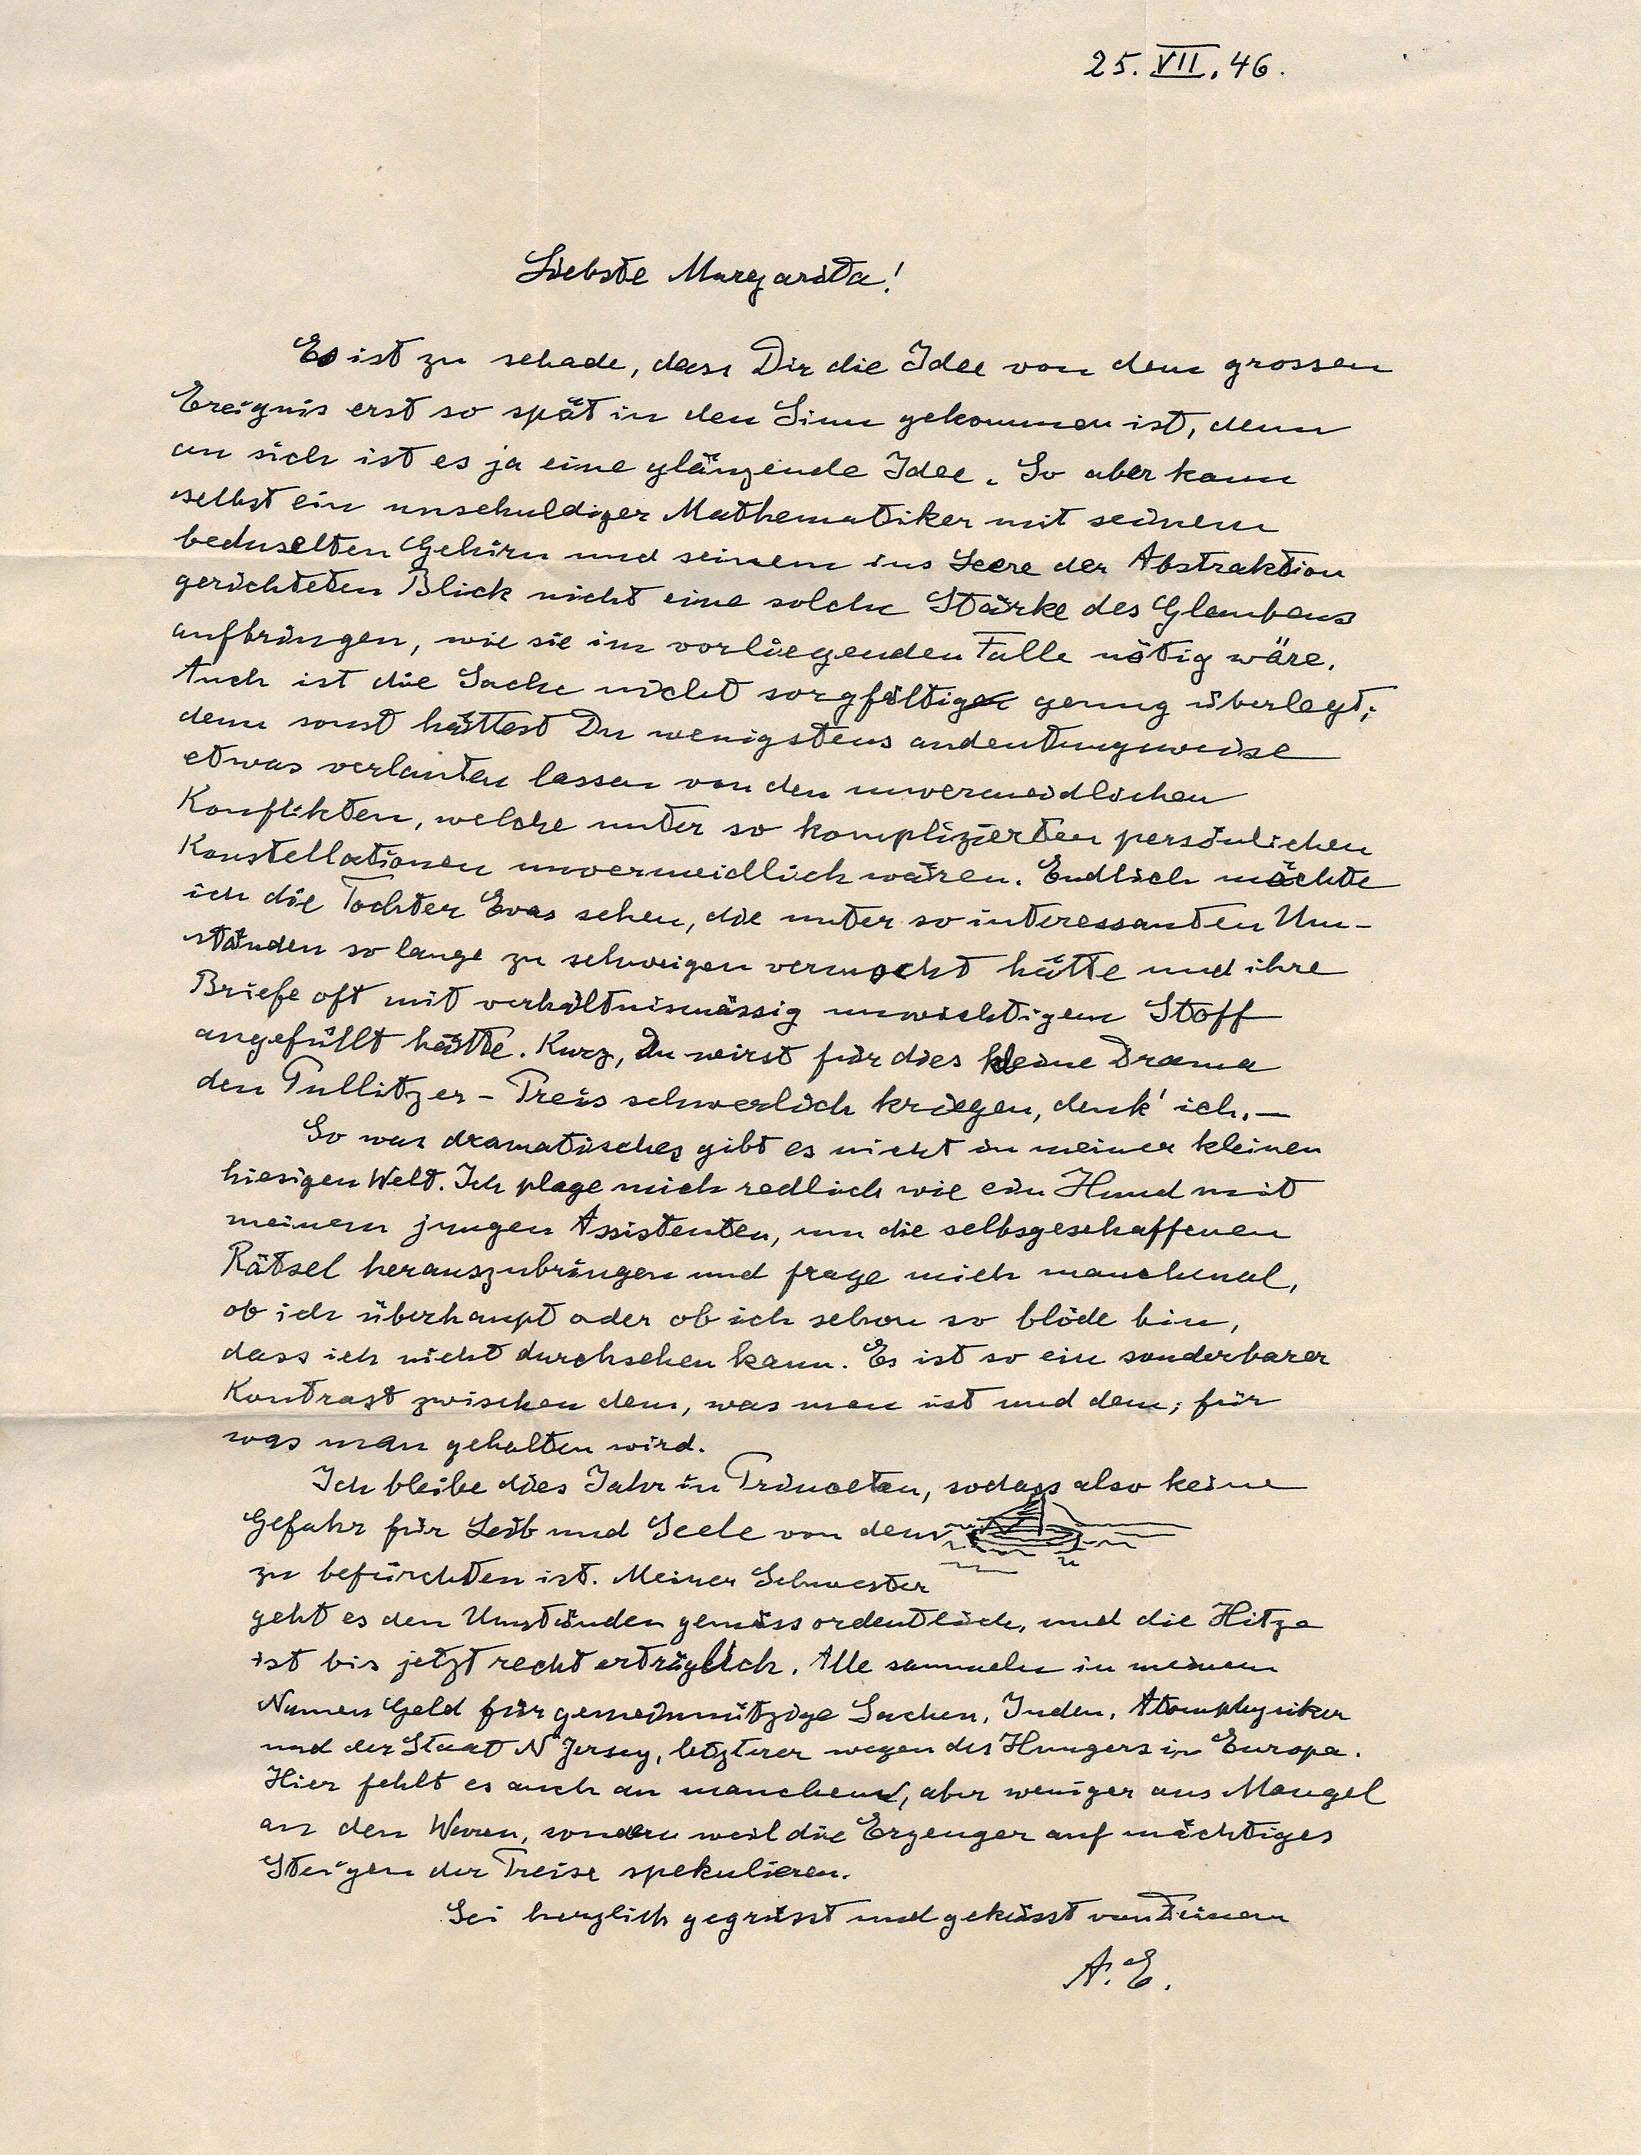 25. VII. 46.
Liebste Margarita!
Es ist zu schade, dass Dir die Idee von dem grossen
Ereignis erst so spät in den Sinn gekommen ist, denn
an sich ist es ja eine glänzende Idee. So aber kann
selbst ein unschuldiger Mathematiker mit seinem
beduselten Gehirn und seinem ins Leere der Abstraktion
gerichteten Blick nicht eine solche Stärke des Glaubens
aufbringen, wie sie im vorliegenden Falle nötig wäre.
Auch ist die Sache nicht sorgfältig genug überlegt;
denn sonst hättest Du wenigstens andeutungsweise
etwas verlauten lassen von den unvermeidlichen
Konflikten, welche unter so komplizierten persönlichen
Konstellationen unvermeidlich wären. Endlich möchte
ich die Tochter Evas sehen, die unter so interessanten Um-
ständen so lange zu schweigen vermocht hätte und ihre
Briefe oft mit verhältnismässig unwichtigem Stoff
angefüllt hätte. Kurz, Du wirst für dies kleine Drama
den Pullitzer-Preis schwerlich kriegen, denk' ich.—
So was dramatisches gibt es nicht in meiner kleinen
hiesigen Welt. Ich plage mich redlich wie ein Hund mit
meinem jungen Assistenten, um die selbsgeschaffenen
Rätsel herauszubringen und frage mich manchmal,
ob ich überhaupt oder ob ich schon so blöde bin,
dass ich nicht durchsehen kann. Es ist so ein sonderbarer
Kontrast zwischen dem, was man ist und dem, für
was man gehalten wird.
Ich bleibe dies Jahr in Princeton, sodass also keine
Gefahr für Leib und Seele von dem
zu befürchten ist. Meiner Schwester
geht es den Umständen gemäss ordentlich, und die Hitze
ist bis jetzt recht erträglich. Alle sammeln in meinem
Namen Geld für gemeinnützige Sachen, Juden, Atomphysiker
und der Staat N Jersey, letzterer wegen des Hungers in Europa.
Hier fehlt es auch an manchem, aber weniger aus Mangel
an den Waren, sondern weil die Erzeuger auf mächtiges
Steigen der Preise spekulieren.
Sei herzlich gegrüsst und geküsst von Deinem
A. E.